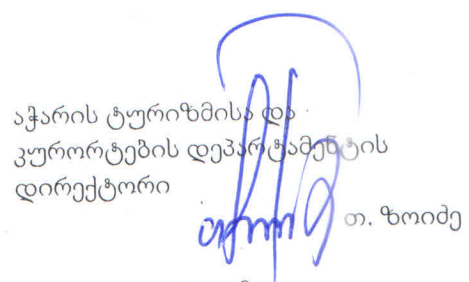 აჭარის ტურიზმისა და
კურორტების დეპარტამენტის
დირექტორი
თ. ზოიძე